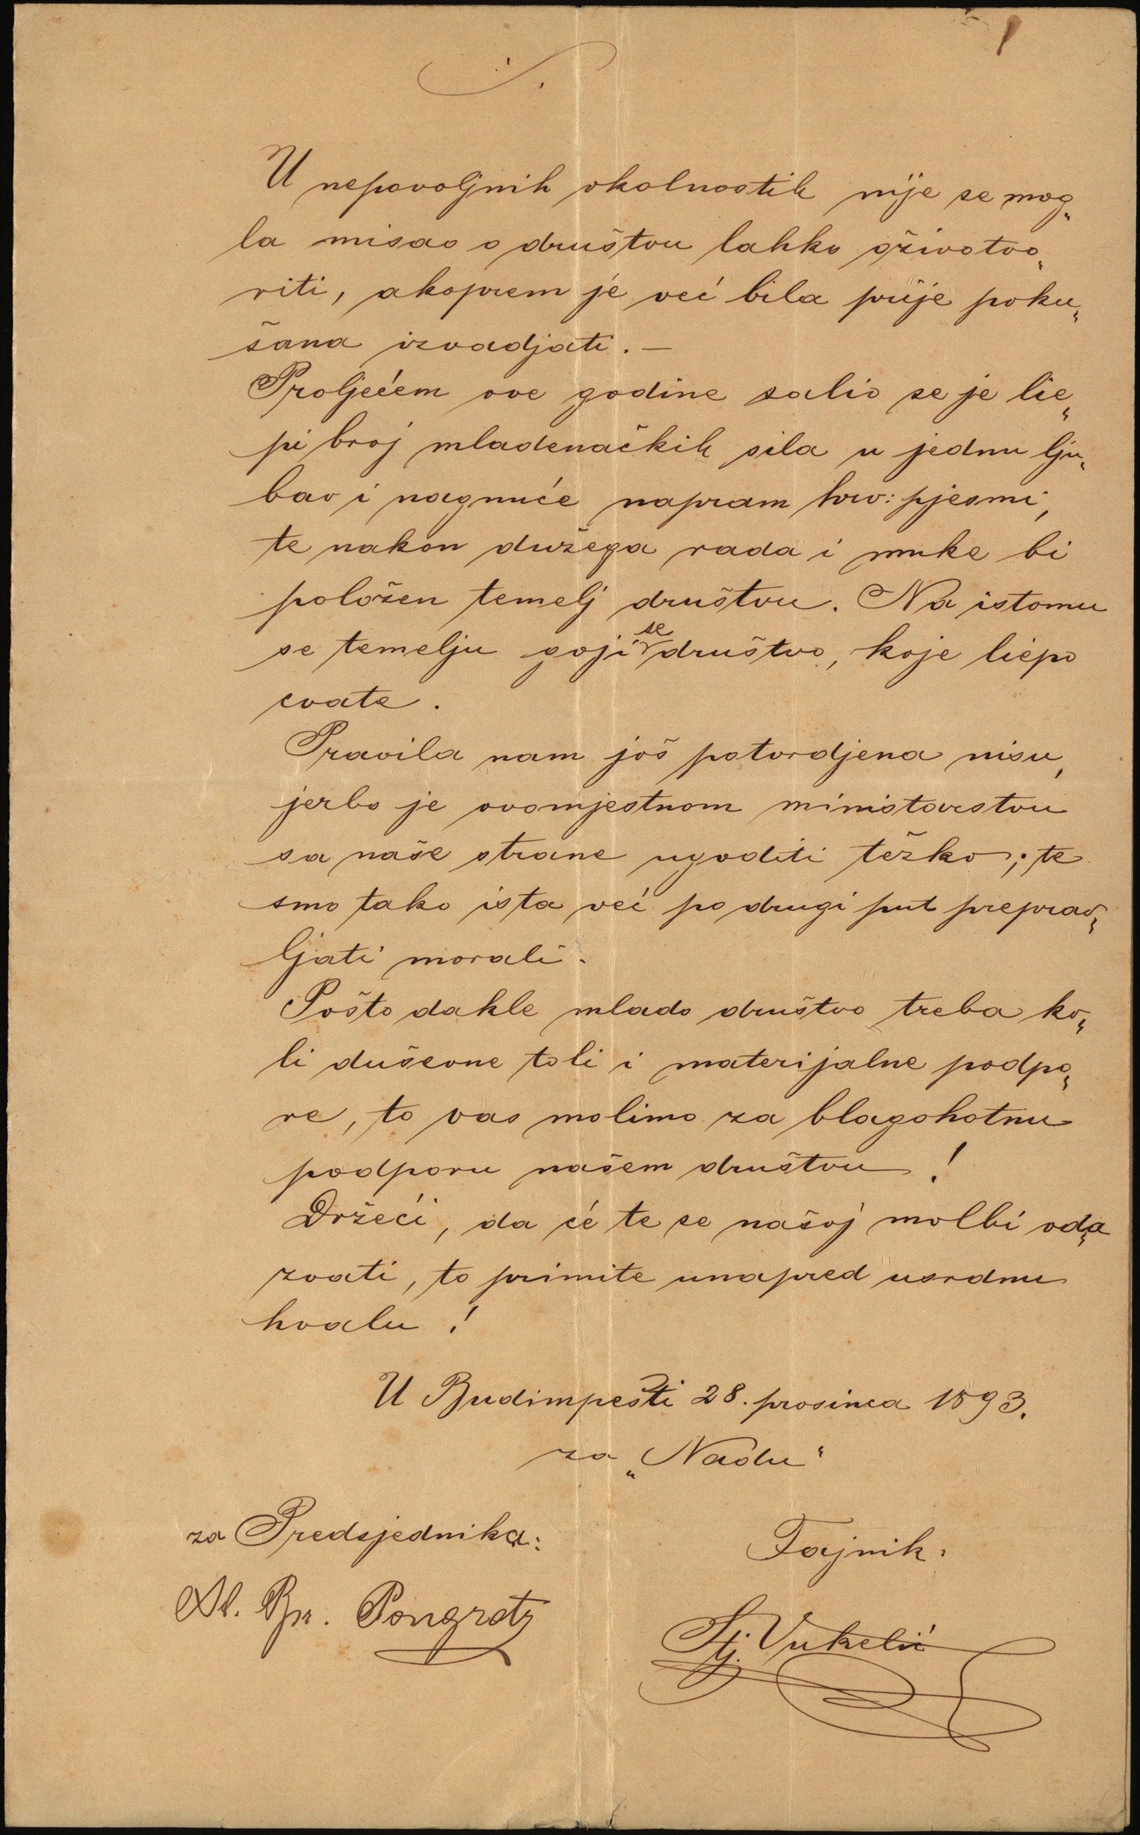 U nepovoljnih okolnostih nije se mog„
la misao o društvu lahko oživotvo„
riti, akoprem je već bila prije poku„
šana izvadjati. —
Proljećem ove godine salio se je lie„
pi broj mladenačkih sila u jednu lju„
bav i nagnuće napram hrv: pjesmi,
te nakon dužega rada i muke bi
položen temelj društvu. Na istomu
se temelju goji se društvo, koje liepo
cvate.
Pravila nam još potvrdjena nisu,
jerbo je ovomjestnom ministarstvu
sa naše strane ugoditi težko; te
smo tako ista već po drugi put preprav„
ljati morali.
Pošto dakle mlado društvo treba ko„
li duševne toli i materijalne podpo„
re, to vas molimo za blagohotnu
podporu našem društvu!
Držeći, da će te se našoj molbi oda
zvati, to primite unapred usrdnu
hvalu!
U Budimpešti 28. prosinca 1893.
za „Nadu“
za Predsjednika:
Tajnik:
Pongratz
Stj. Vukelić